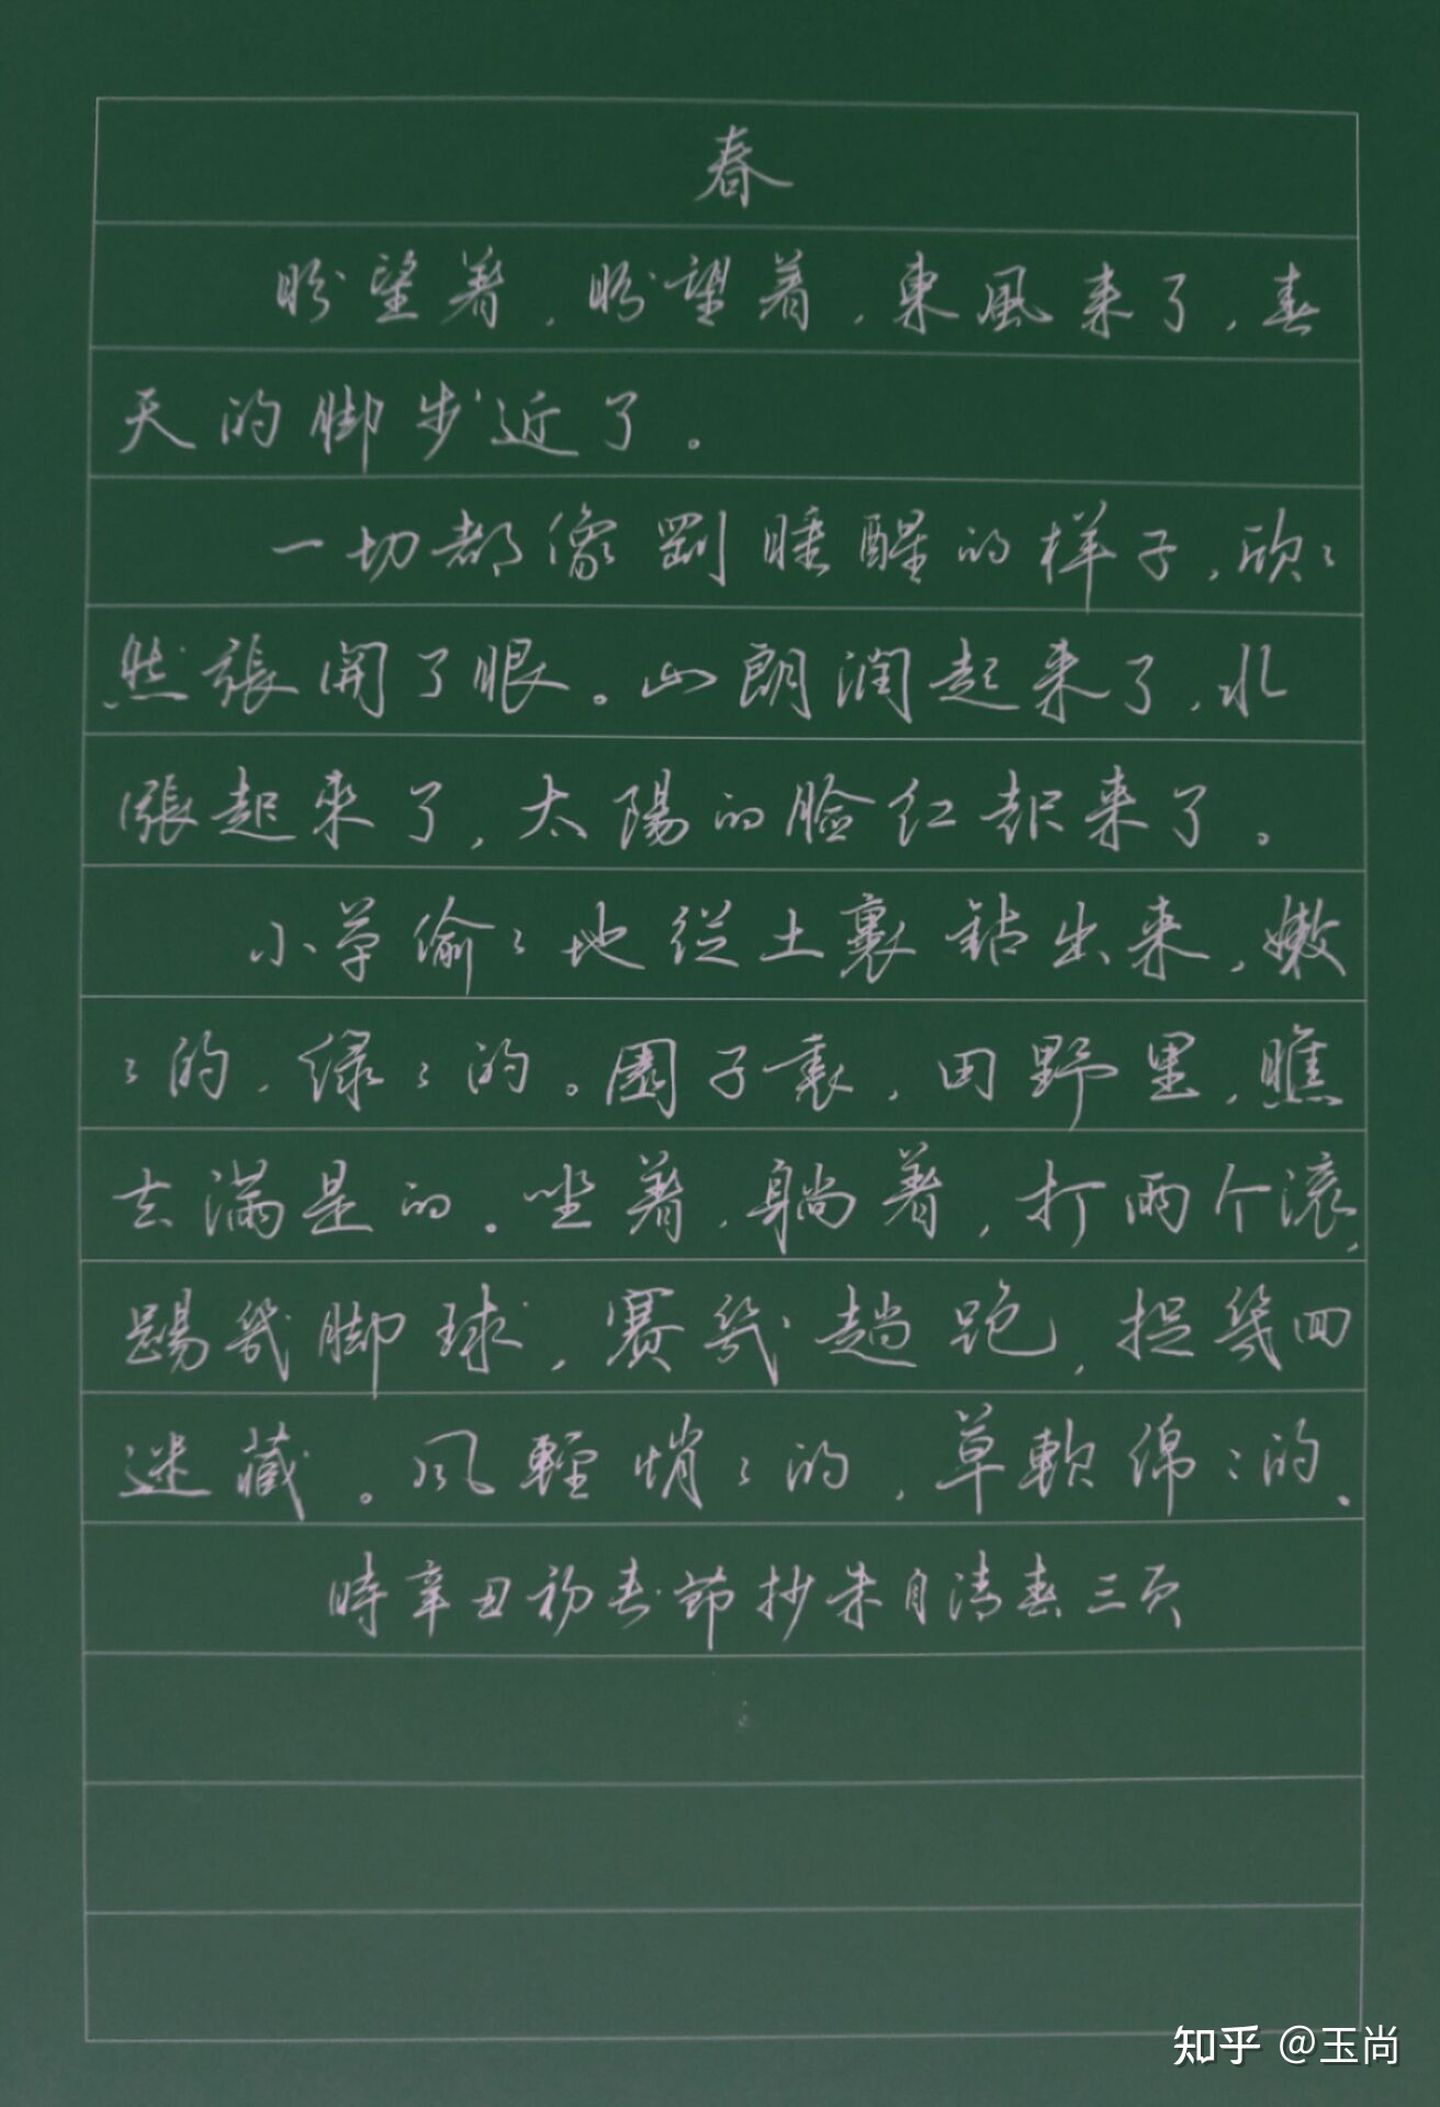 春
盼望著，盼望着，東風来了，春
天的脚步近了。
一切都像剛睡醒的样子，欣〻
然張開了眼。山朗潤起来了，水
漲起來了，太陽的脸红起来了。
小草偷〻地從土裏鉆出来，嫩
〻的，绿〻的。園子裏，田野里，瞧
去满是的。坐着，躺着，打兩个滚，
踢幾脚球，赛幾趟跑，捉幾回
迷藏。风輕悄〻的，草軟绵〻的。
時辛丑初春節抄朱自清春三页
知乎 @玉尚